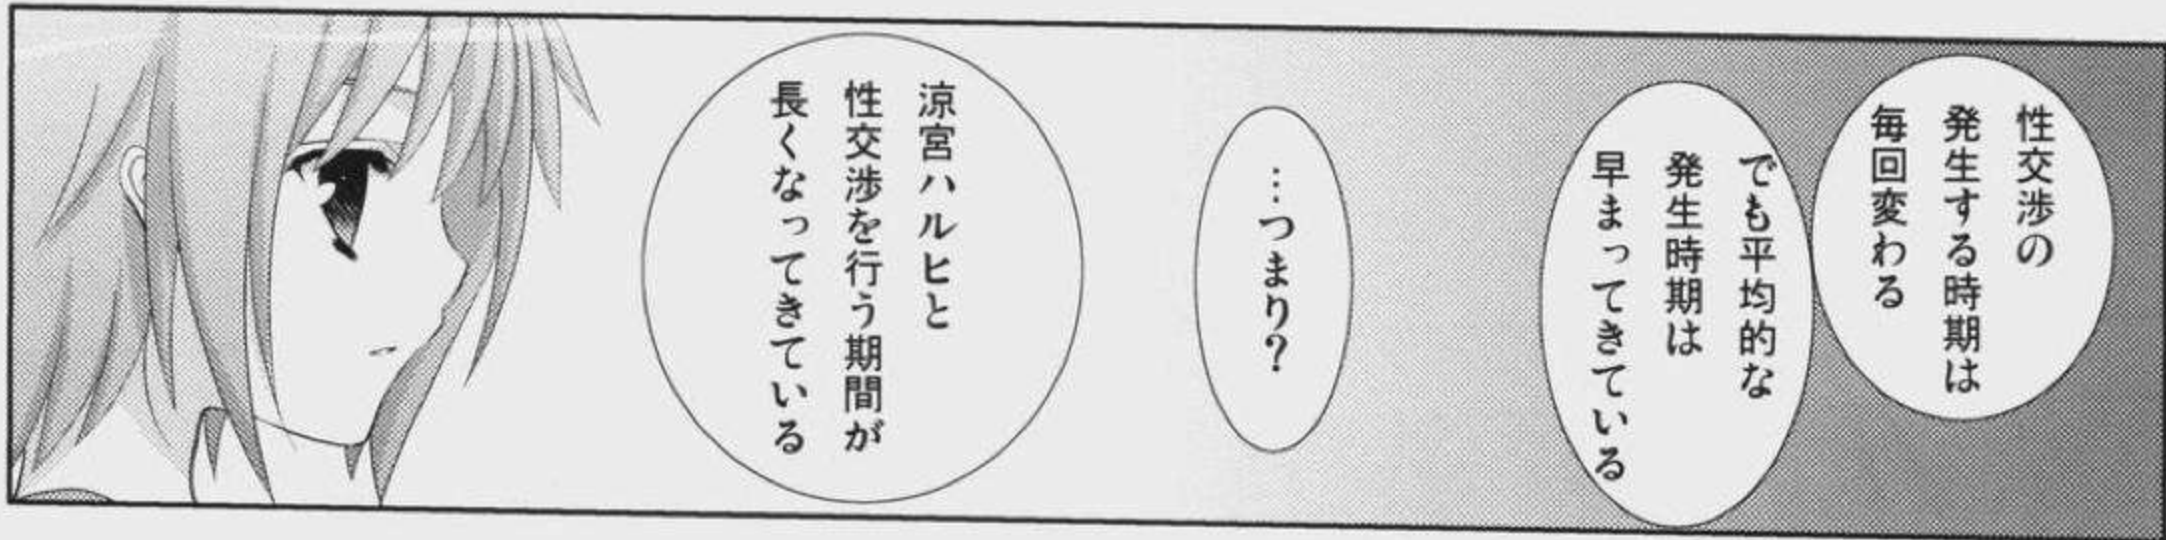 性交渉の
発生する時期は
毎回変わる
でも平均的な
発生時期は
早まってきている
…つまり?
涼宮ハルヒと
性交渉を行う期間が
長くなってきている